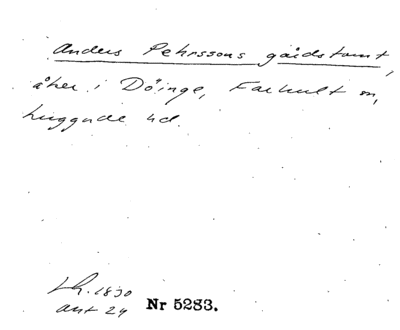 Anders Pehrssons gårdstomt,
åker i Döinge, Farhult sn,
Luggude hd.
Lh. 1830
akt 24 Nr 5283.